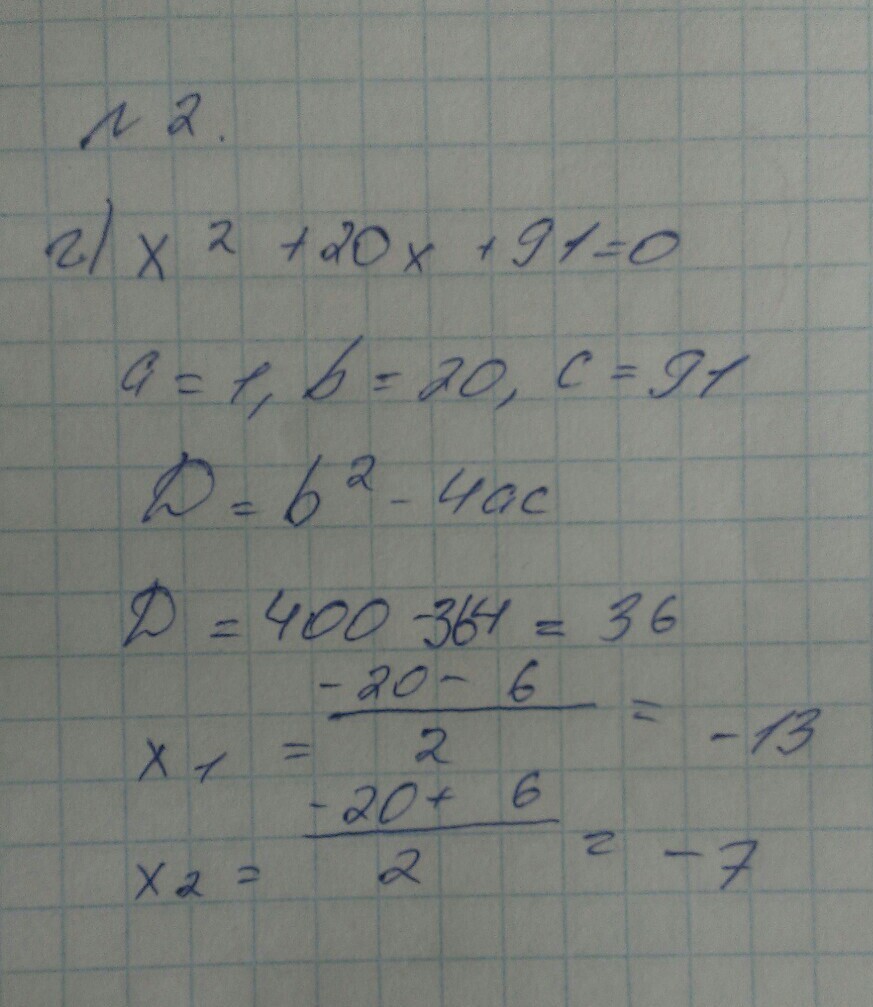 № 2.
г) x² + 20x + 91 = 0
a = 1, b = 20, c = 91
D = b² - 4ac
D = 400 - 364 = 36
x₁ = (-20 - 6)/2 = -13
x₂ = (-20 + 6)/2 = -7